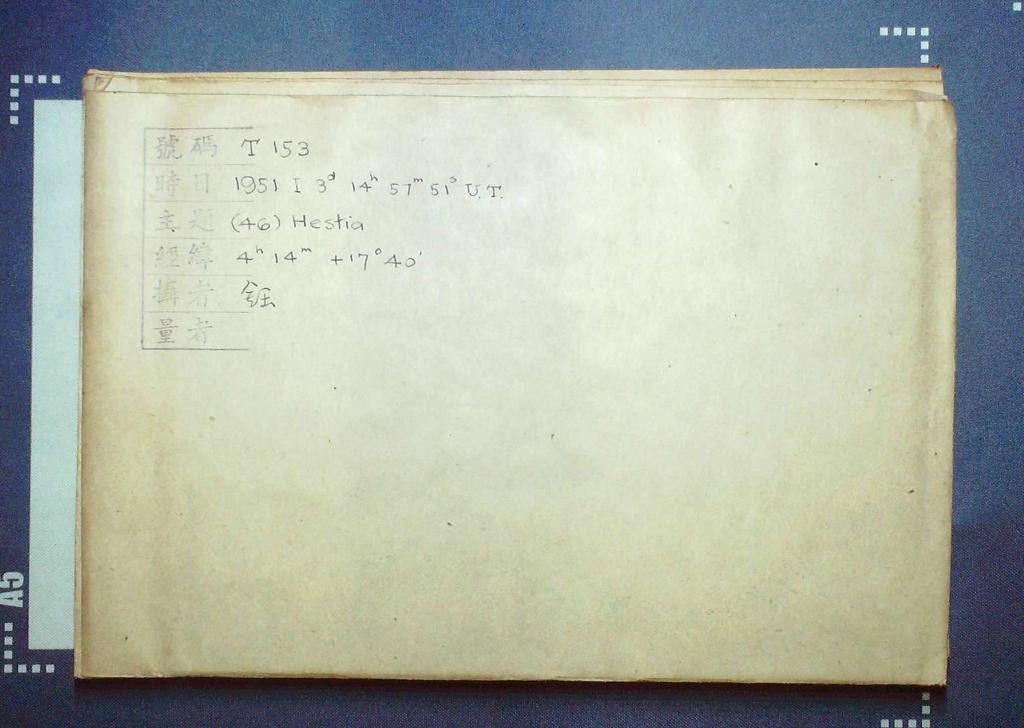 號碼 T 153
時日 1951 I 3ᵈ 14ʰ 57ᵐ 51ˢ U.T.
主題 (46) Hestia
經緯 4ʰ 14ᵐ +17°40'
攝者
量者
A5